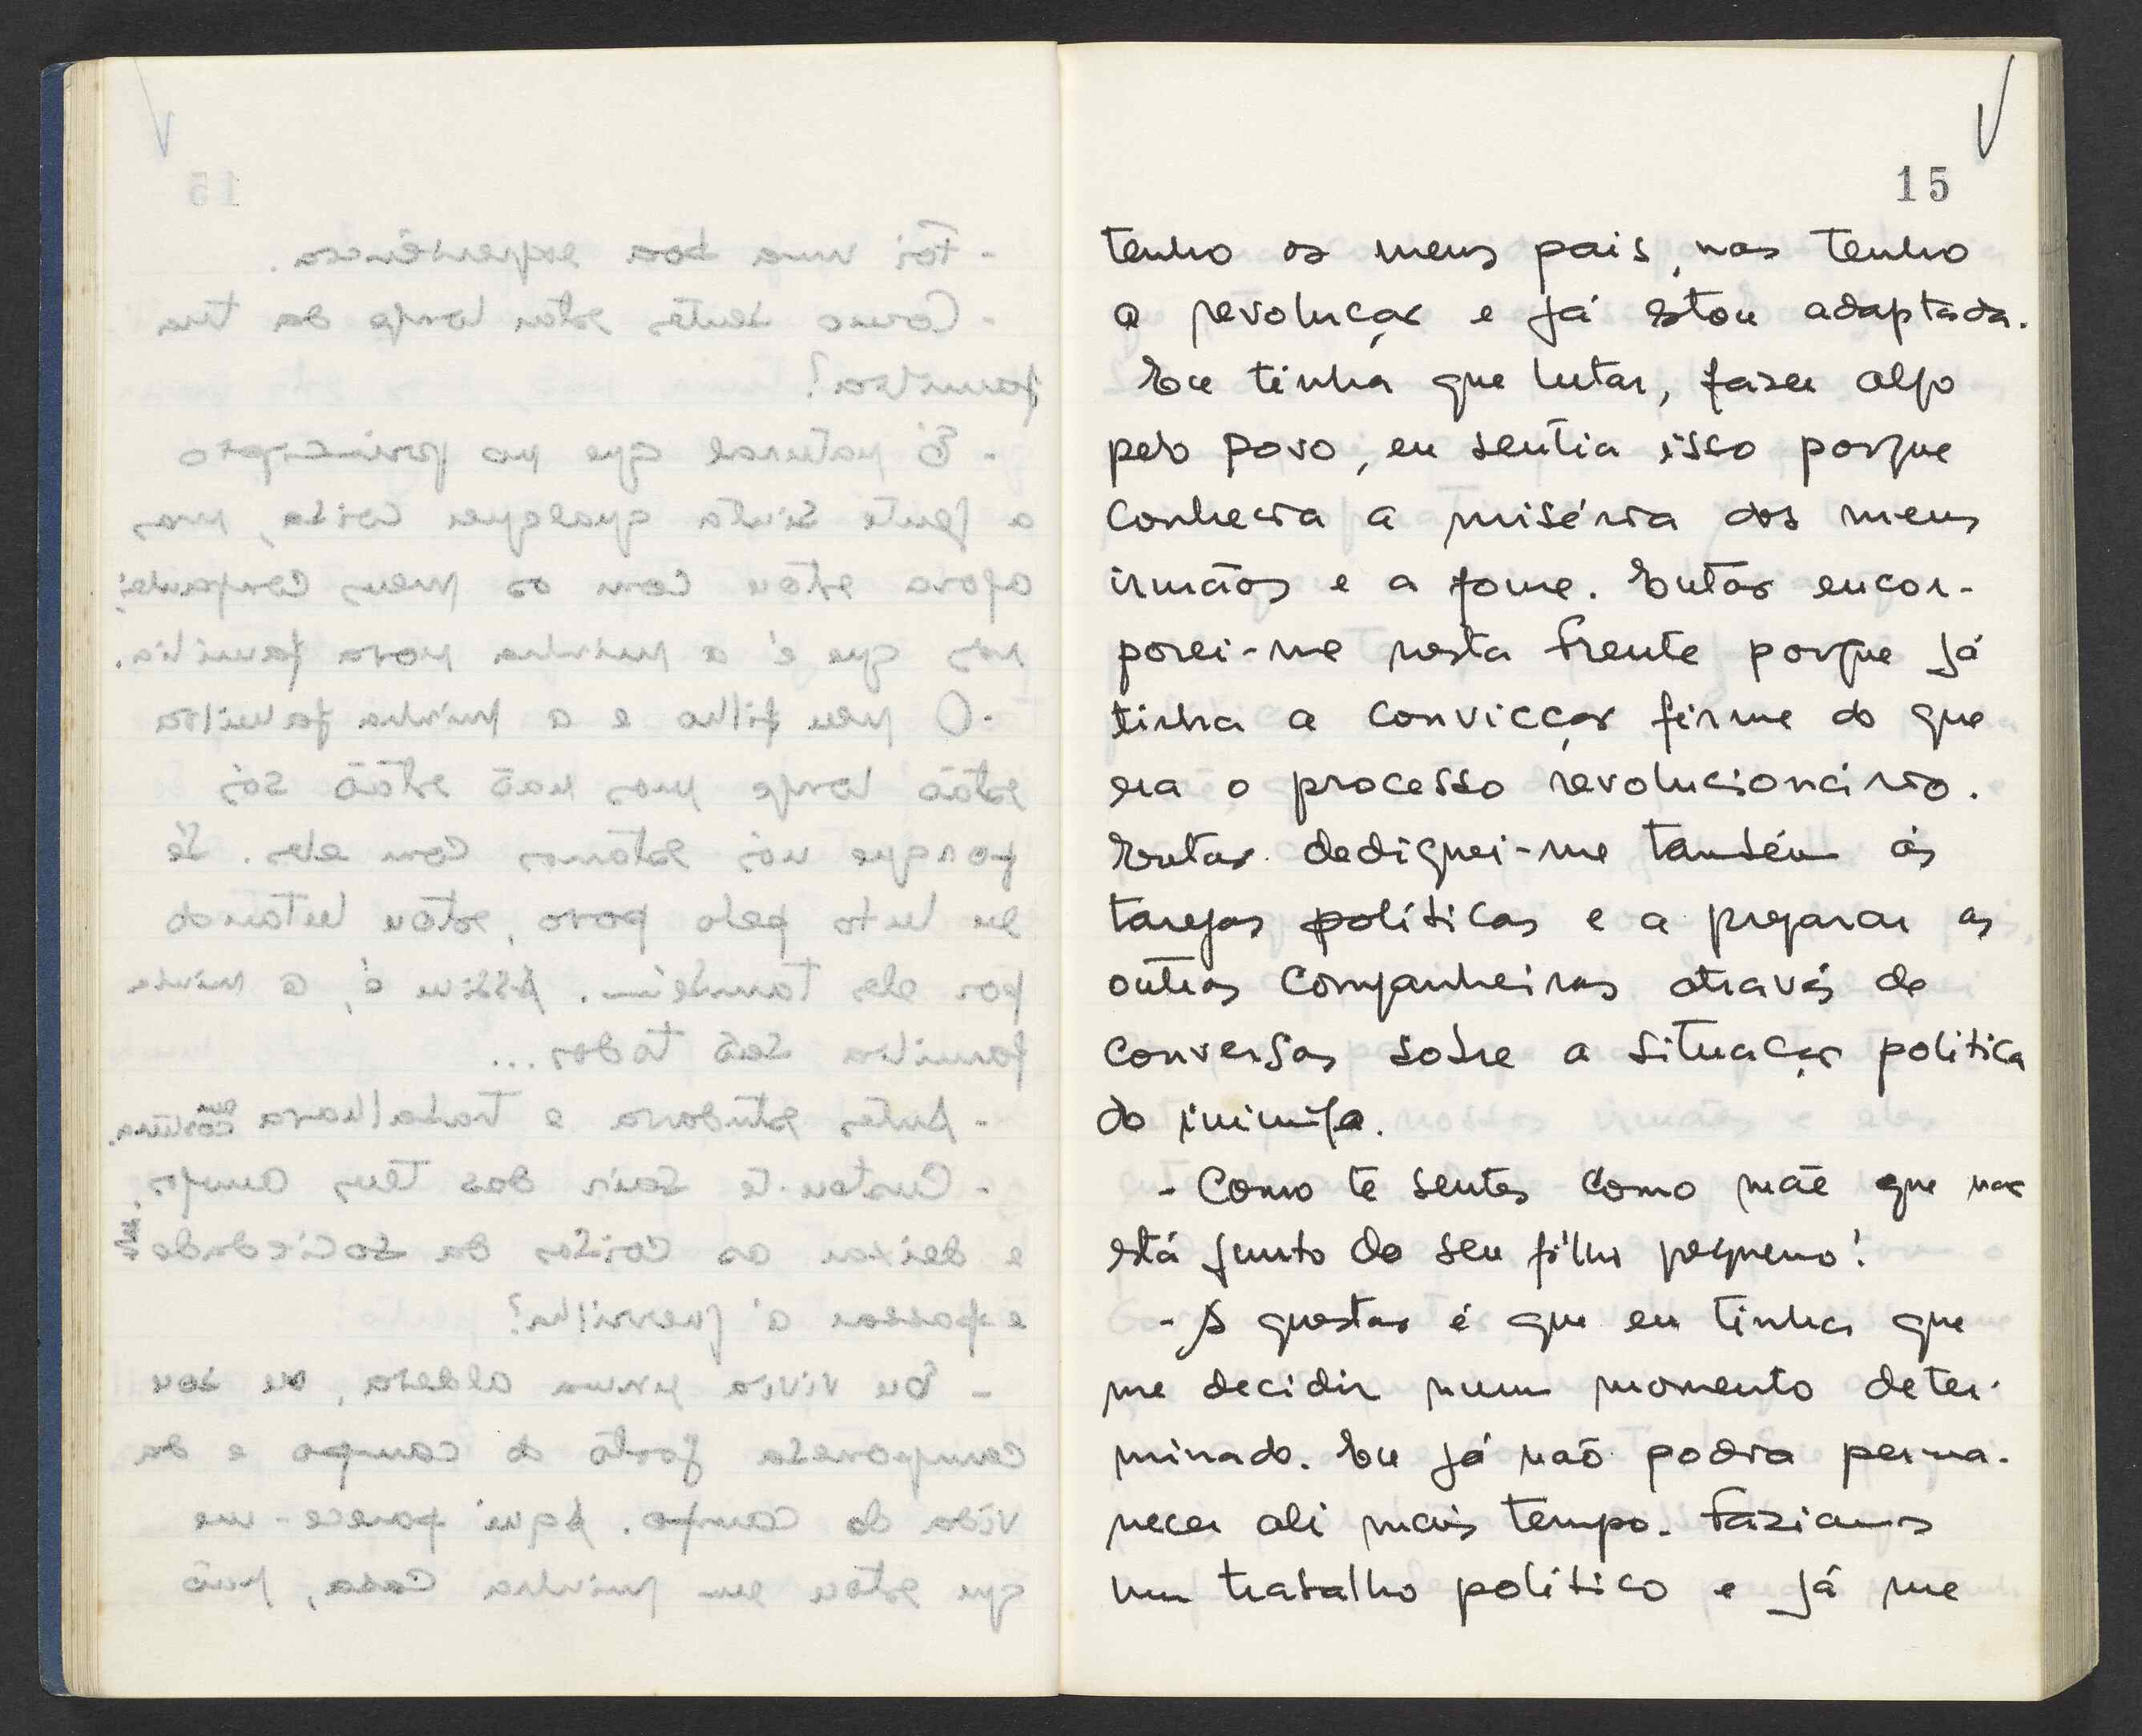 15
tenho os meus pais, mas tenho
a revolução e já estou adaptada.
Eu tinha que lutar, fazer algo
pelo povo, eu sentia isso porque
conhecia a miséria dos meus
irmãos e a fome. Então encor-
porei-me nesta frente porque já
tinha a convicção firme do que
era o processo revolucionário.
Então dediquei-me também às
tarefas políticas e a preparar as
outras companheiras através de
conversas sobre a situação politica
do inimigo.
- Como te sentes como mãe que não
está junto do seu filho pequeno?
- A questão é que eu tinha que
me decidir num momento deter-
minado. Eu já não podia perma-
necer ali mais tempo. Faziamos
um trabalho político e já me